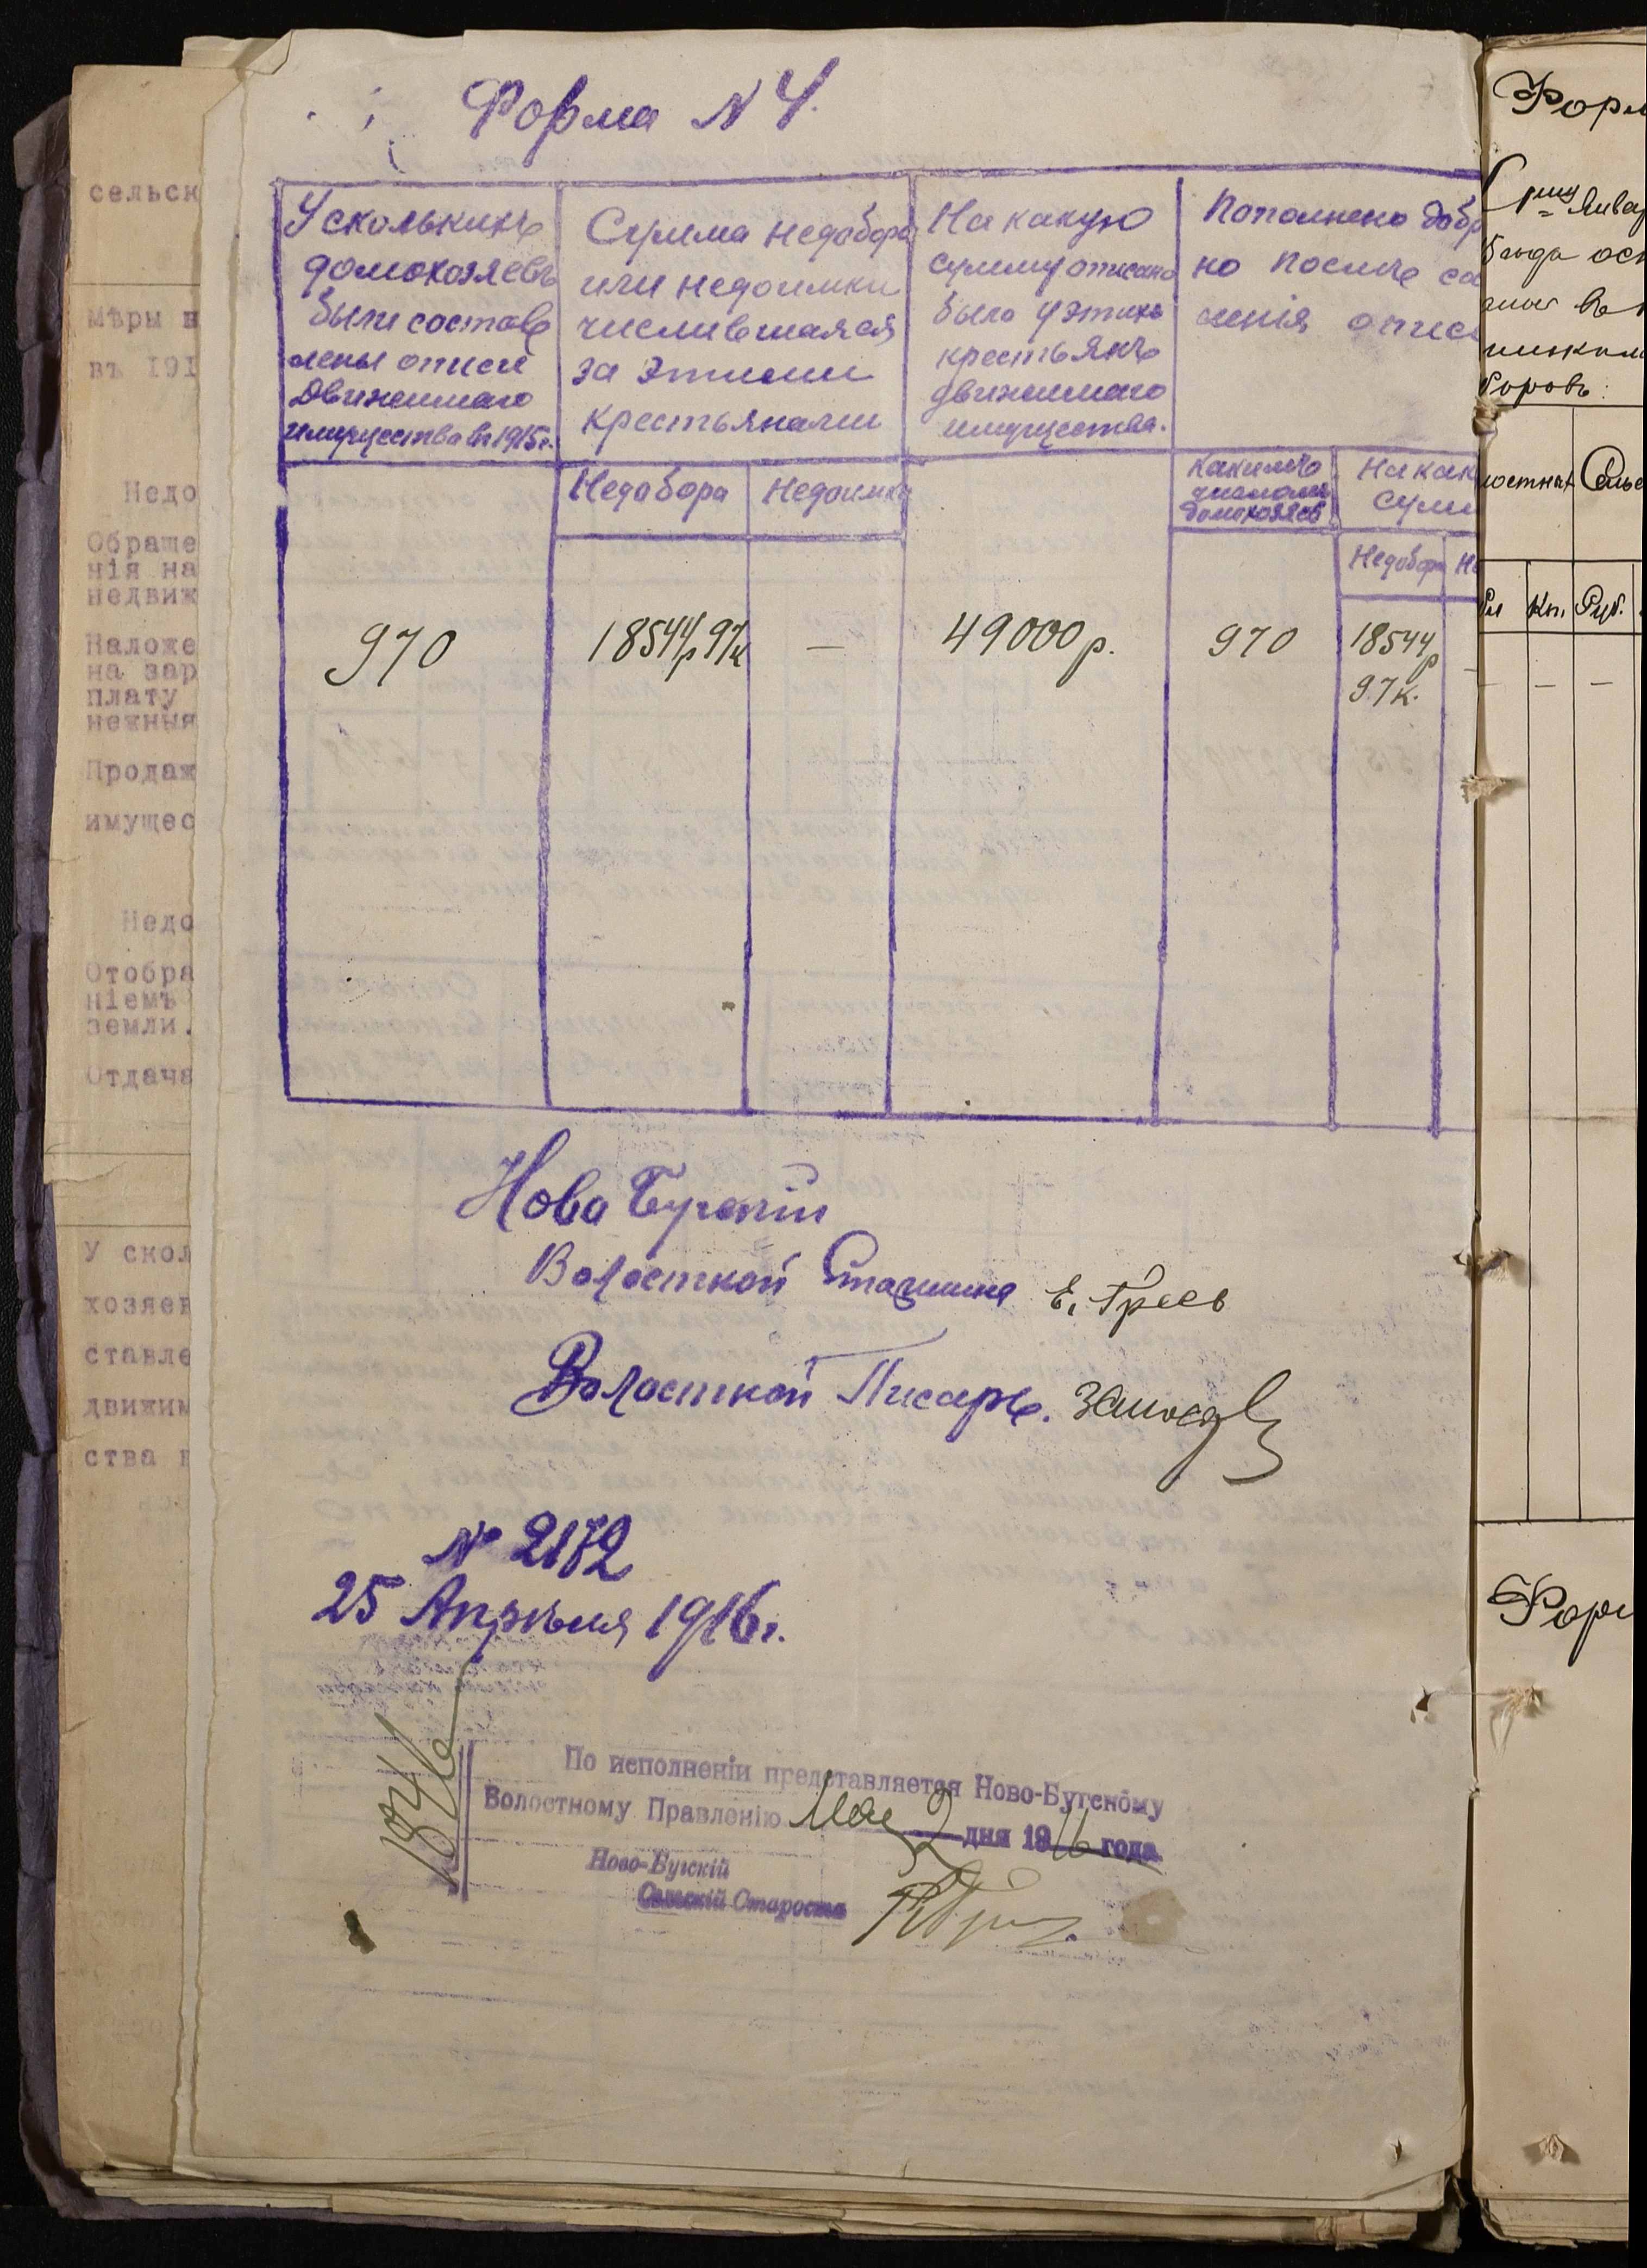 Форма N 4.
У сколькихъ
домохозяевъ
были состав
лены описи
движимаго
имущества въ 1915 г.
Сумма недобора
или недоимки
числившаяся
за этими
крестьянами
На какую
сумму описано
было у этихъ
крестьянъ
движимаго
имущества.
Пополнено добр
но послѣ со
ленія описи
Недобора
Недоимки
Какимъ
числомъ
домохозяев
На как
сум
Недобора
Не
970
18544р 97к
—
49000 р.
970
18544
р
97 к.
Ново Бугскій
Волосткой Старшина
Волосткой Писарь.
№ 2172
25 Апрѣля 1916 г.
1804/6
По исполненіи представляется Ново-Бугскому
Волостному Правленію Мая 2 дня 1916 года.
Ново-Бугскій
Сельскій Староста
сельск
мѣры
въ 191
Недо
Обраще
нія на
недвиж
Наложе
на зар
плату
нежныя
Продаж
имущес
Недо
Отобра
ніемъ
земли.
Отдача
У скол
хозяев
ставле
движим
ства
Форм
1му Январ
года ост
въ
боровъ:
Сельс
Кп.
Руб.
— — —
Форм